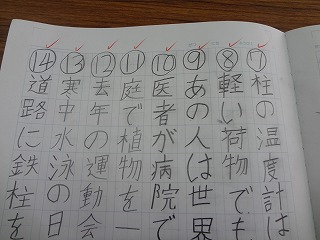 ⑦柱の温度計は
⑧軽い荷物でも
⑨あの人は世界
⑩医者が病院で
⑪庭で植物を一
⑫去年の運動会
⑬寒中水泳の日
⑭道路に鉄柱を